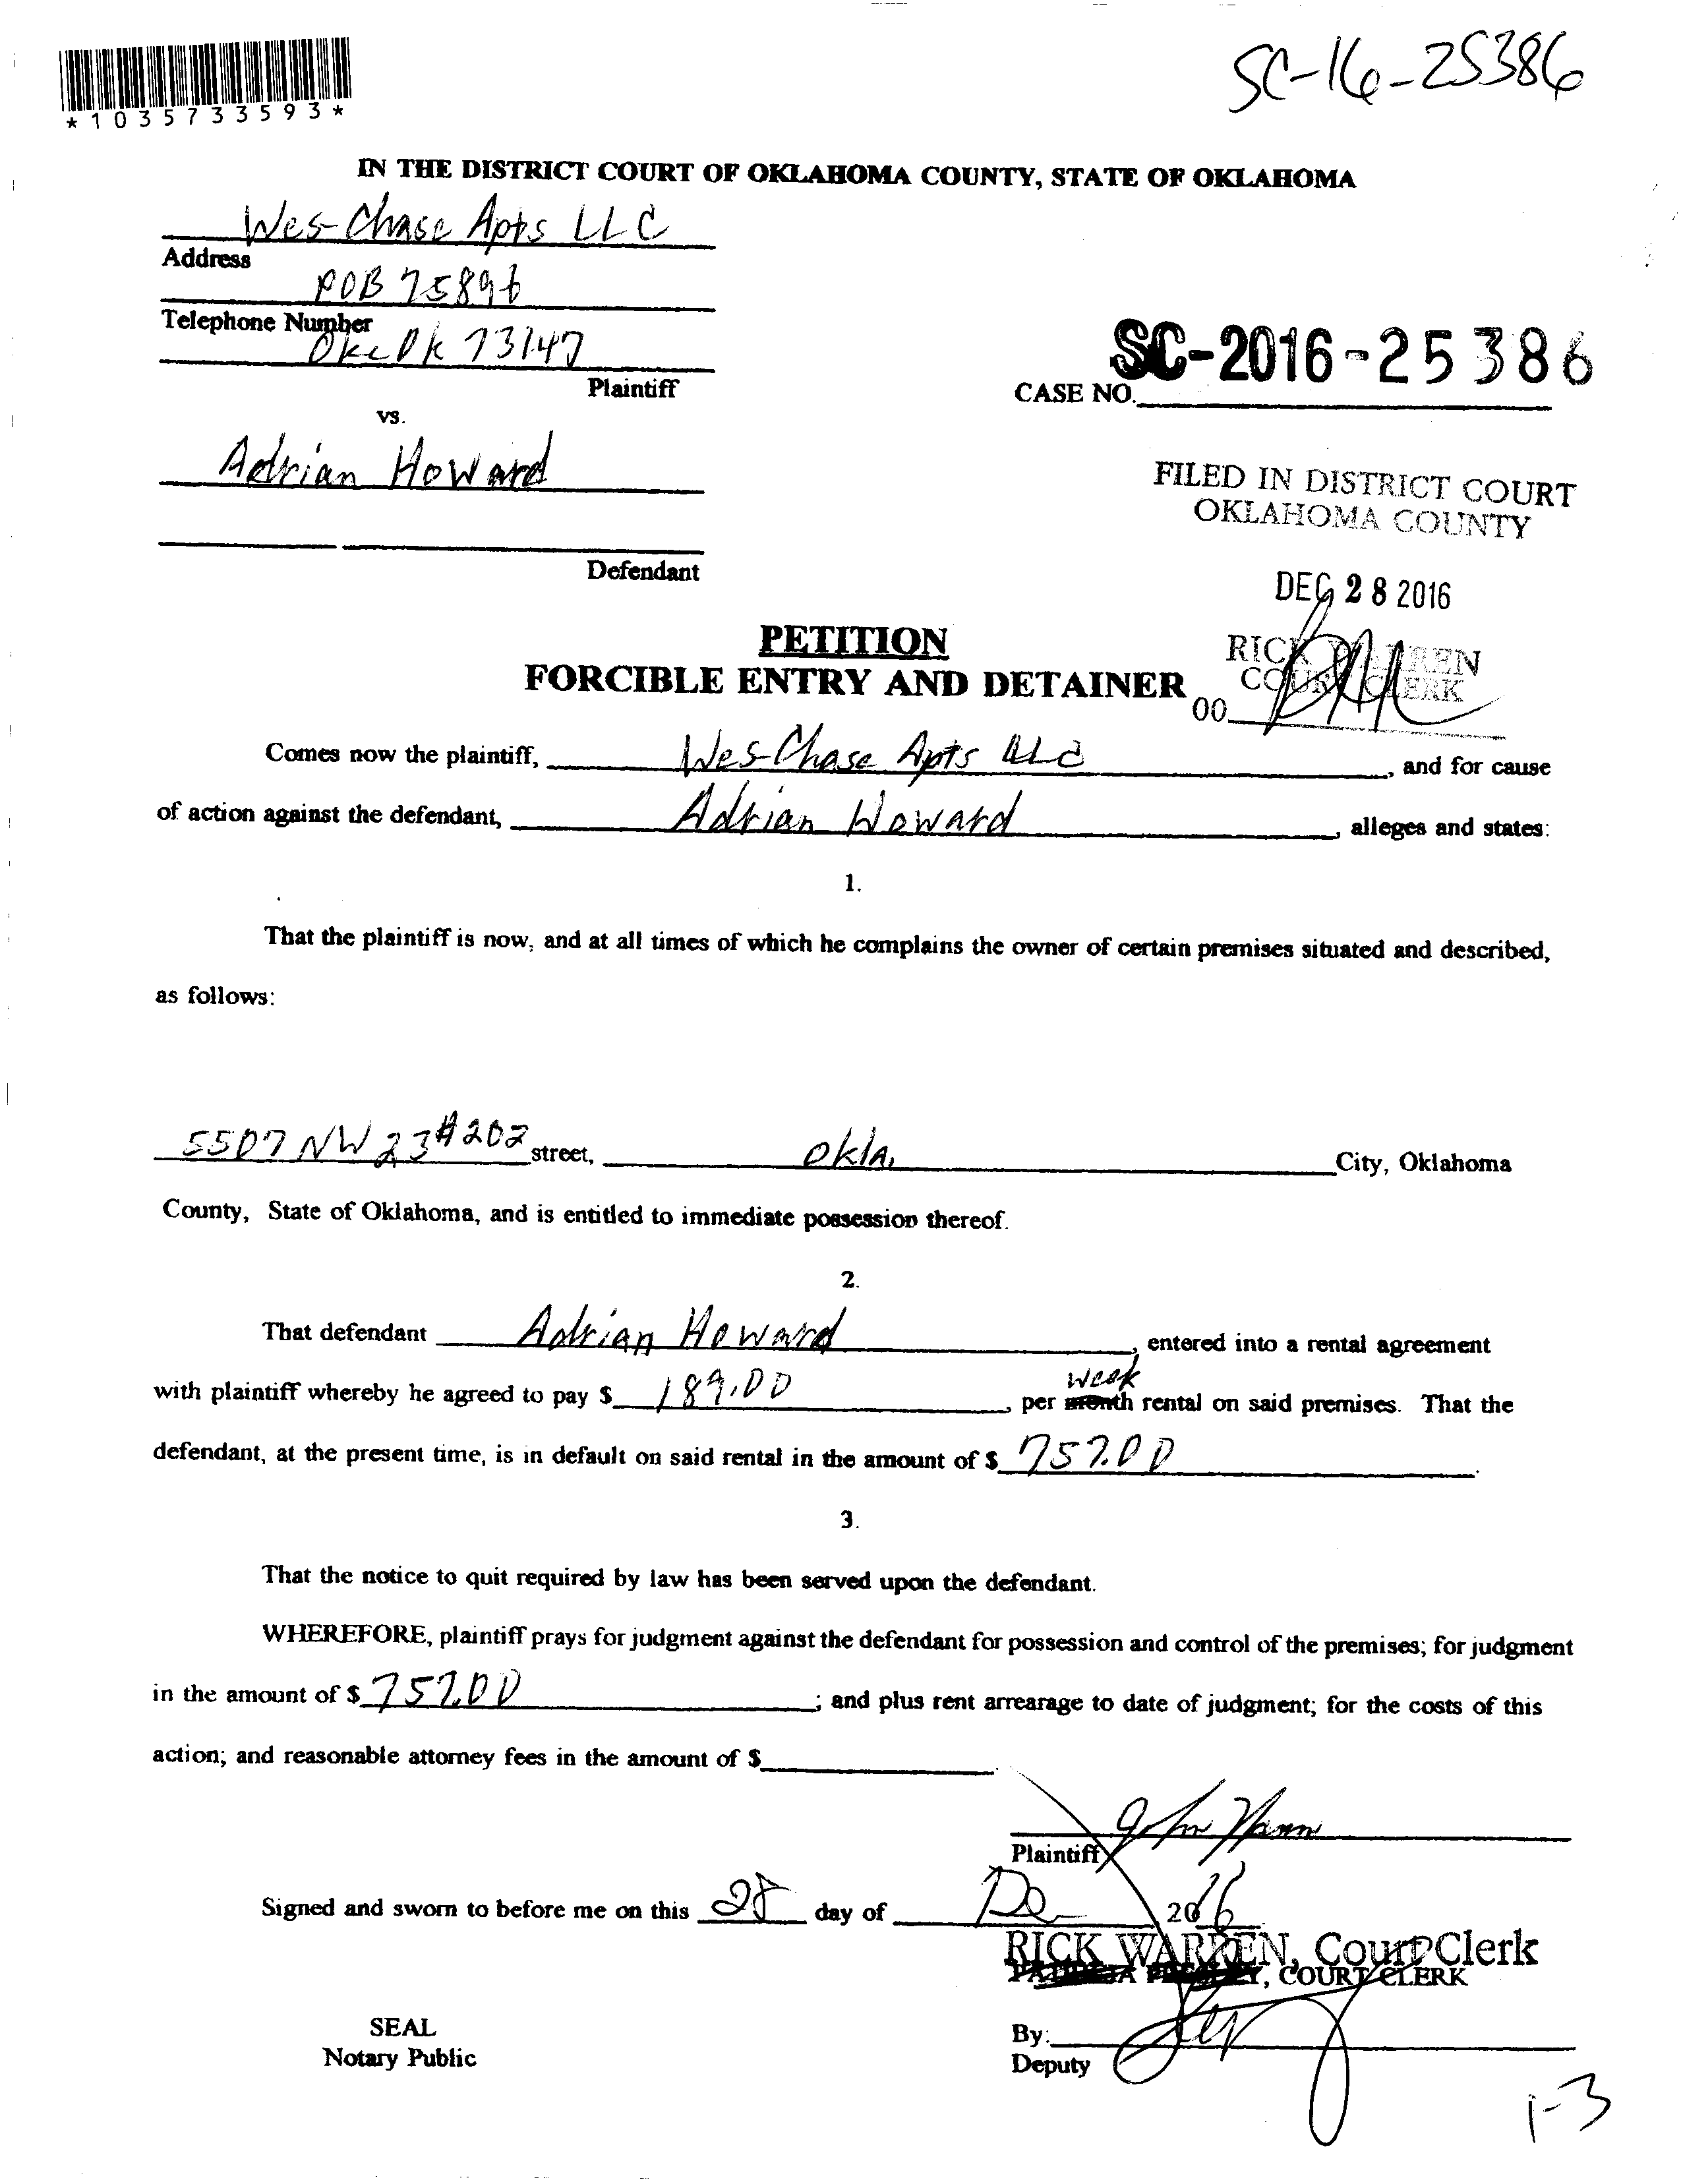 SC-16-25386
*1035733593*
IN THE DISTRICT COURT OF OKLAHOMA COUNTY, STATE OF OKLAHOMA
Wes-Chase Apts LLC
Address
POB 75896
Telephone Number
Okc Ok 73147
Plaintiff
vs.
SC-2016-25386
CASE NO.
Adrian Howard
Defendant
FILED IN DISTRICT COURT
OKLAHOMA COUNTY
DEC 28 2016
RICK WARREN
COURT CLERK
00
PETITION
FORCIBLE ENTRY AND DETAINER
Comes now the plaintiff, Wes-Chase Apts LLC, and for cause
of action against the defendant, Adrian Howard, alleges and states:
1.
That the plaintiff is now, and at all times of which he complains the owner of certain premises situated and described,
as follows:
5507 NW 23 #202 street, Okla. City, Oklahoma
County, State of Oklahoma, and is entitled to immediate possession thereof.
2.
That defendant Adrian Howard, entered into a rental agreement
with plaintiff whereby he agreed to pay $ 189.00, per month week rental on said premises. That the
defendant, at the present time, is in default on said rental in the amount of $ 757.00.
3.
That the notice to quit required by law has been served upon the defendant.
WHEREFORE, plaintiff prays for judgment against the defendant for possession and control of the premises; for judgment
in the amount of $ 757.00; and plus rent arrearage to date of judgment; for the costs of this
action; and reasonable attorney fees in the amount of $
Plaintiff
Signed and sworn to before me on this 28 day of De 2016
RICK WARREN, Court Clerk
, COURT CLERK
SEAL
Notary Public
By:
Deputy
1-3